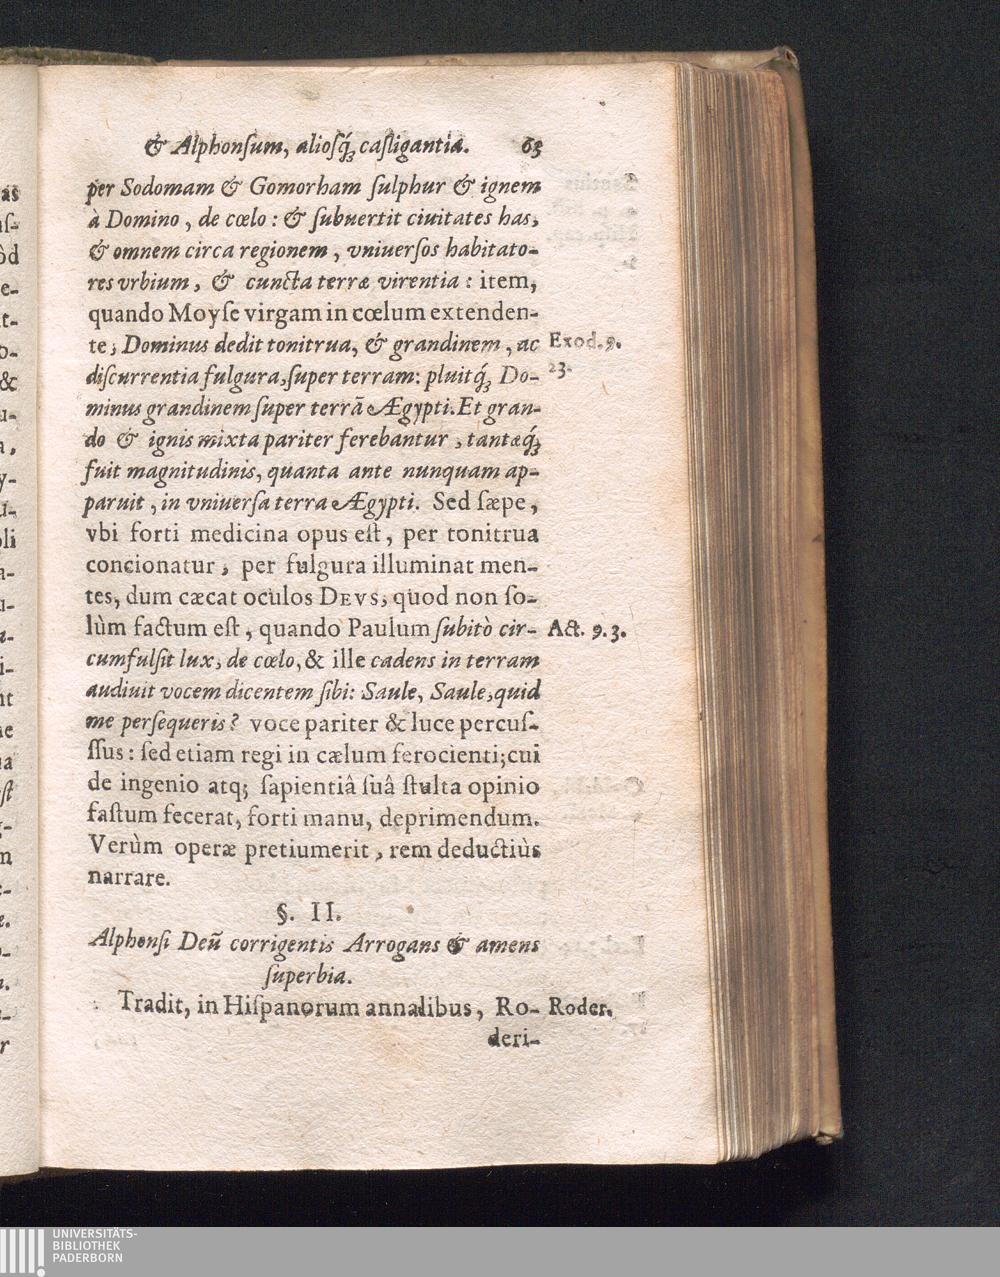 & Alphonſum, alioſq́; caſtigantia. 63
per Sodomam & Gomorham ſulphur & ignem
à Domino, de cœlo: & ſubuertit ciuitates has,
& omnem circa regionem, vniuerſos habitato-
res vrbium, & cuncta terræ virentia: item,
quando Moyſe virgam in cœlum extenden-
te; Dominus dedit tonitrua, & grandinem, ac Exod. 9.
diſcurrentia fulgura, ſuper terram: pluitq́; Do- 23.
minus grandinem ſuper terrā Ægypti. Et gran-
do & ignis mixta pariter ferebantur, tantæq́;
fuit magnitudinis, quanta ante nunquam ap-
paruit, in vniuerſa terra Ægypti. Sed ſæpe,
vbi forti medicina opus eſt, per tonitrua
concionatur, per fulgura illuminat men-
tes, dum cæcat oculos DEVS, quod non ſo-
lùm factum eſt, quando Paulum ſubitò cir- Act. 9. 3.
cumfulſit lux, de cœlo, & ille cadens in terram
audiuit vocem dicentem ſibi: Saule, Saule, quid
me perſequeris? voce pariter & luce percuſ-
ſſus: ſed etiam regi in cælum ferocienti; cui
de ingenio atq; ſapientiâ ſuâ ſtulta opinio
faſtum fecerat, forti manu, deprimendum.
Verùm operæ pretium erit, rem deductiùs
narrare.
§. II.
Alphonſi Deū corrigentis Arrogans & amens
ſuperbia.
Tradit, in Hiſpanorum annalibus, Ro- Roder.
deri-
UNIVERSITÄTS-
BIBLIOTHEK
PADERBORN